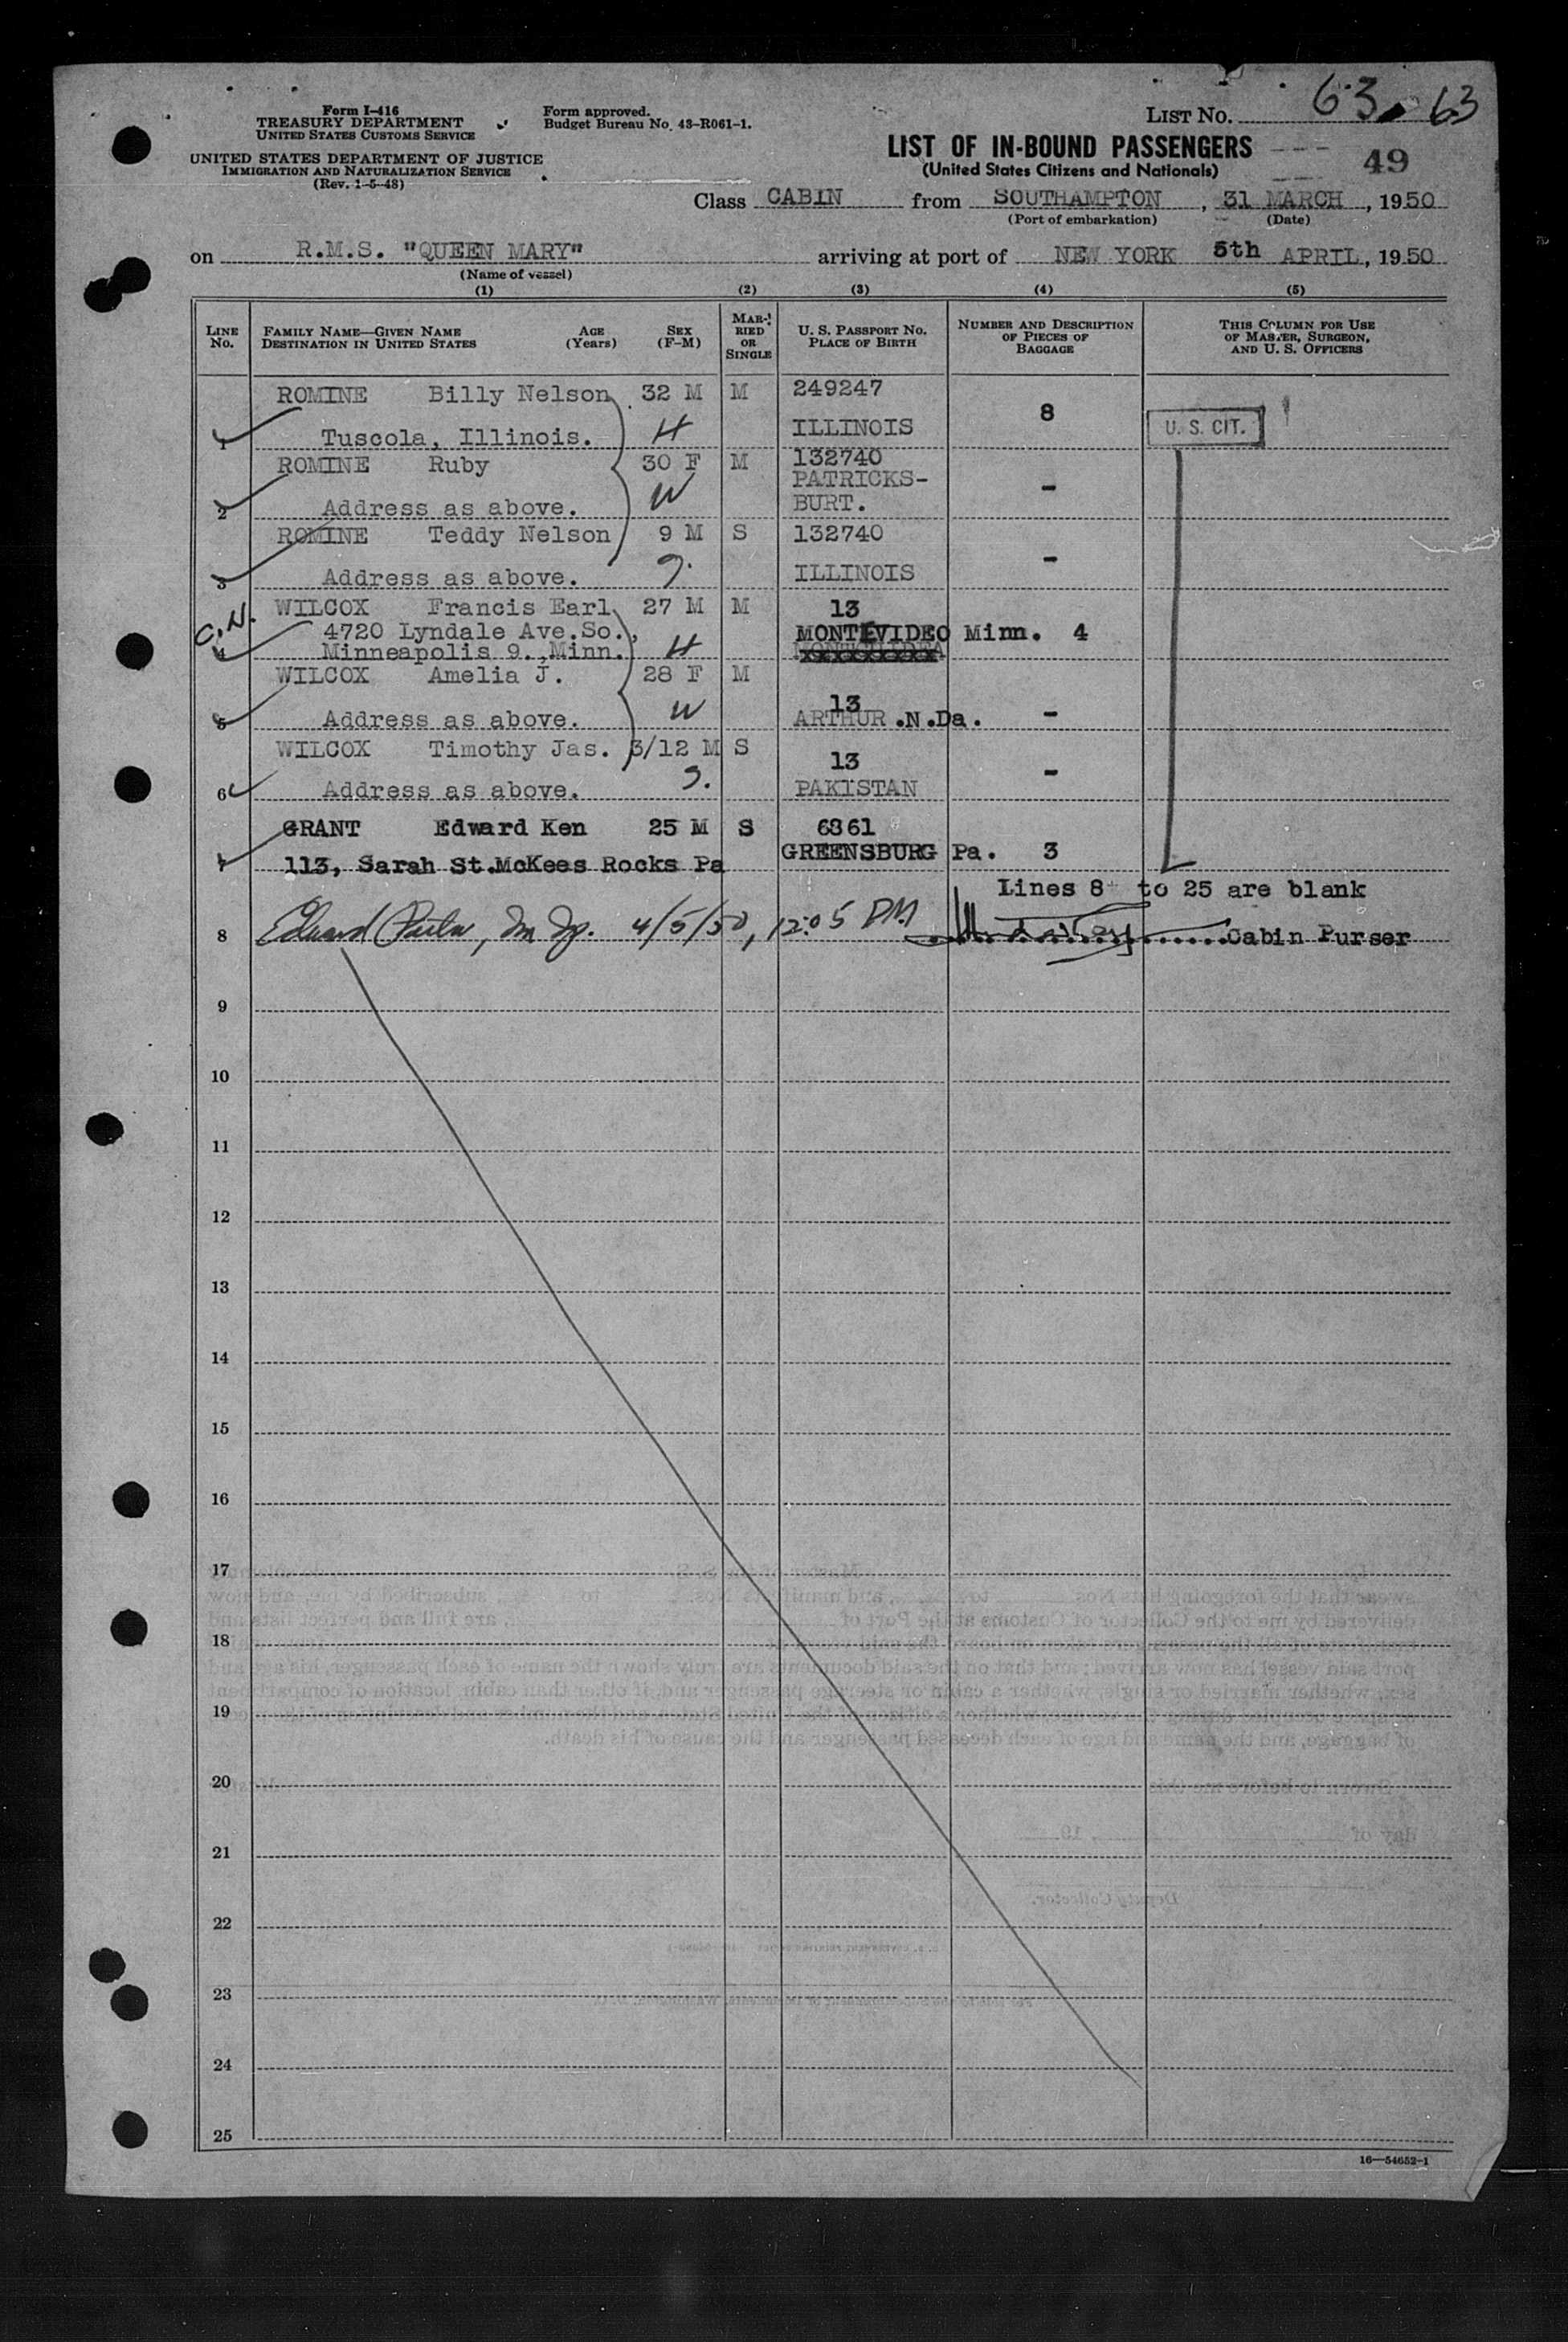 Form I-416
TREASURY DEPARTMENT
UNITED STATES CUSTOMS SERVICE
UNITED STATES DEPARTMENT OF JUSTICE
IMMIGRATION AND NATURALIZATION SERVICE
(Rev. 1-5-48)
Form approved.
Budget Bureau No. 43-R061-1.
LIST NO. 63 63
LIST OF IN-BOUND PASSENGERS
49
(United States Citizens and Nationals)
Class CABIN from SOUTHAMPTON, 31 MARCH, 1950
(Port of embarkation) (Date)
on R.M.S. "QUEEN MARY" arriving at port of NEW YORK 5th APRIL, 1950
(Name of vessel)
(1) (2) (3) (4) (5)
LINE No. FAMILY NAME—GIVEN NAME DESTINATION IN UNITED STATES AGE (Years) SEX (F-M) MARRIED OR SINGLE U. S. PASSPORT NO. PLACE OF BIRTH NUMBER AND DESCRIPTION OF PIECES OF BAGGAGE THIS COLUMN FOR USE OF MASTER, SURGEON, AND U. S. OFFICERS
ROMINE Billy Nelson 32 M M 249247
1 Tuscola, Illinois. H ILLINOIS 8 U. S. CIT.
ROMINE Ruby 30 F M 132740
PATRICKS-
2 Address as above. W BURT. -
ROMINE Teddy Nelson 9 M S 132740
3 Address as above. ILLINOIS -
C.N. WILCOX Francis Earl 27 M M 13
4720 Lyndale Ave.So., MONTEVIDEO Minn. 4
4 Minneapolis 9.,Minn. H
WILCOX Amelia J. 28 F M
13
5 Address as above. W ARTHUR .N.Da. -
WILCOX Timothy Jas. 3/12 M S 13
6 Address as above. PAKISTAN -
GRANT Edward Ken 25 M S 6861
7 113, Sarah St.McKees Rocks Pa GREENSBURG Pa. 3
Lines 8 to 25 are blank
8 Edward 4/5/50, 12:05 PM Cabin Purser
9
10
11
12
13
14
15
16
17
18
19
20
21
22
23
24
25
16—54652-1